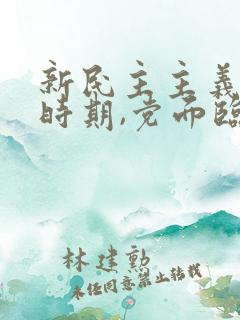 新民主主義
時期,党面臨
林建勲
未經同意禁止转载